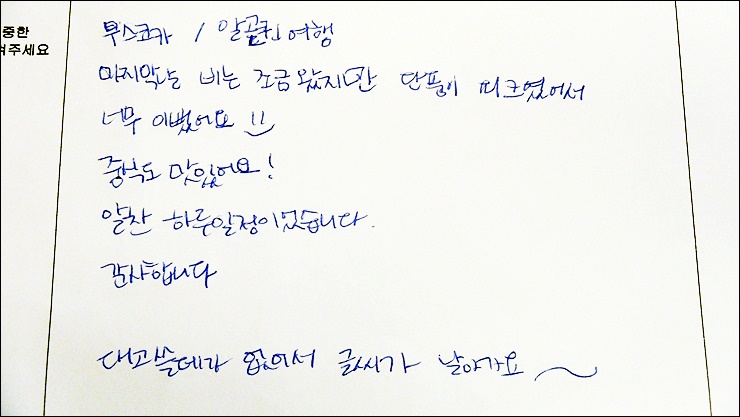 중한
겨주세요
무스코카 / 알곤퀸여행
마지막날 비는 조금왔지만 단풍이 피크였어서
너무 이뻤어요 :)
중식도 맛있어요!
알찬 하루일정이었습니다.
감사합니다
대고쓸데가 없어서 글씨가 날아가요~